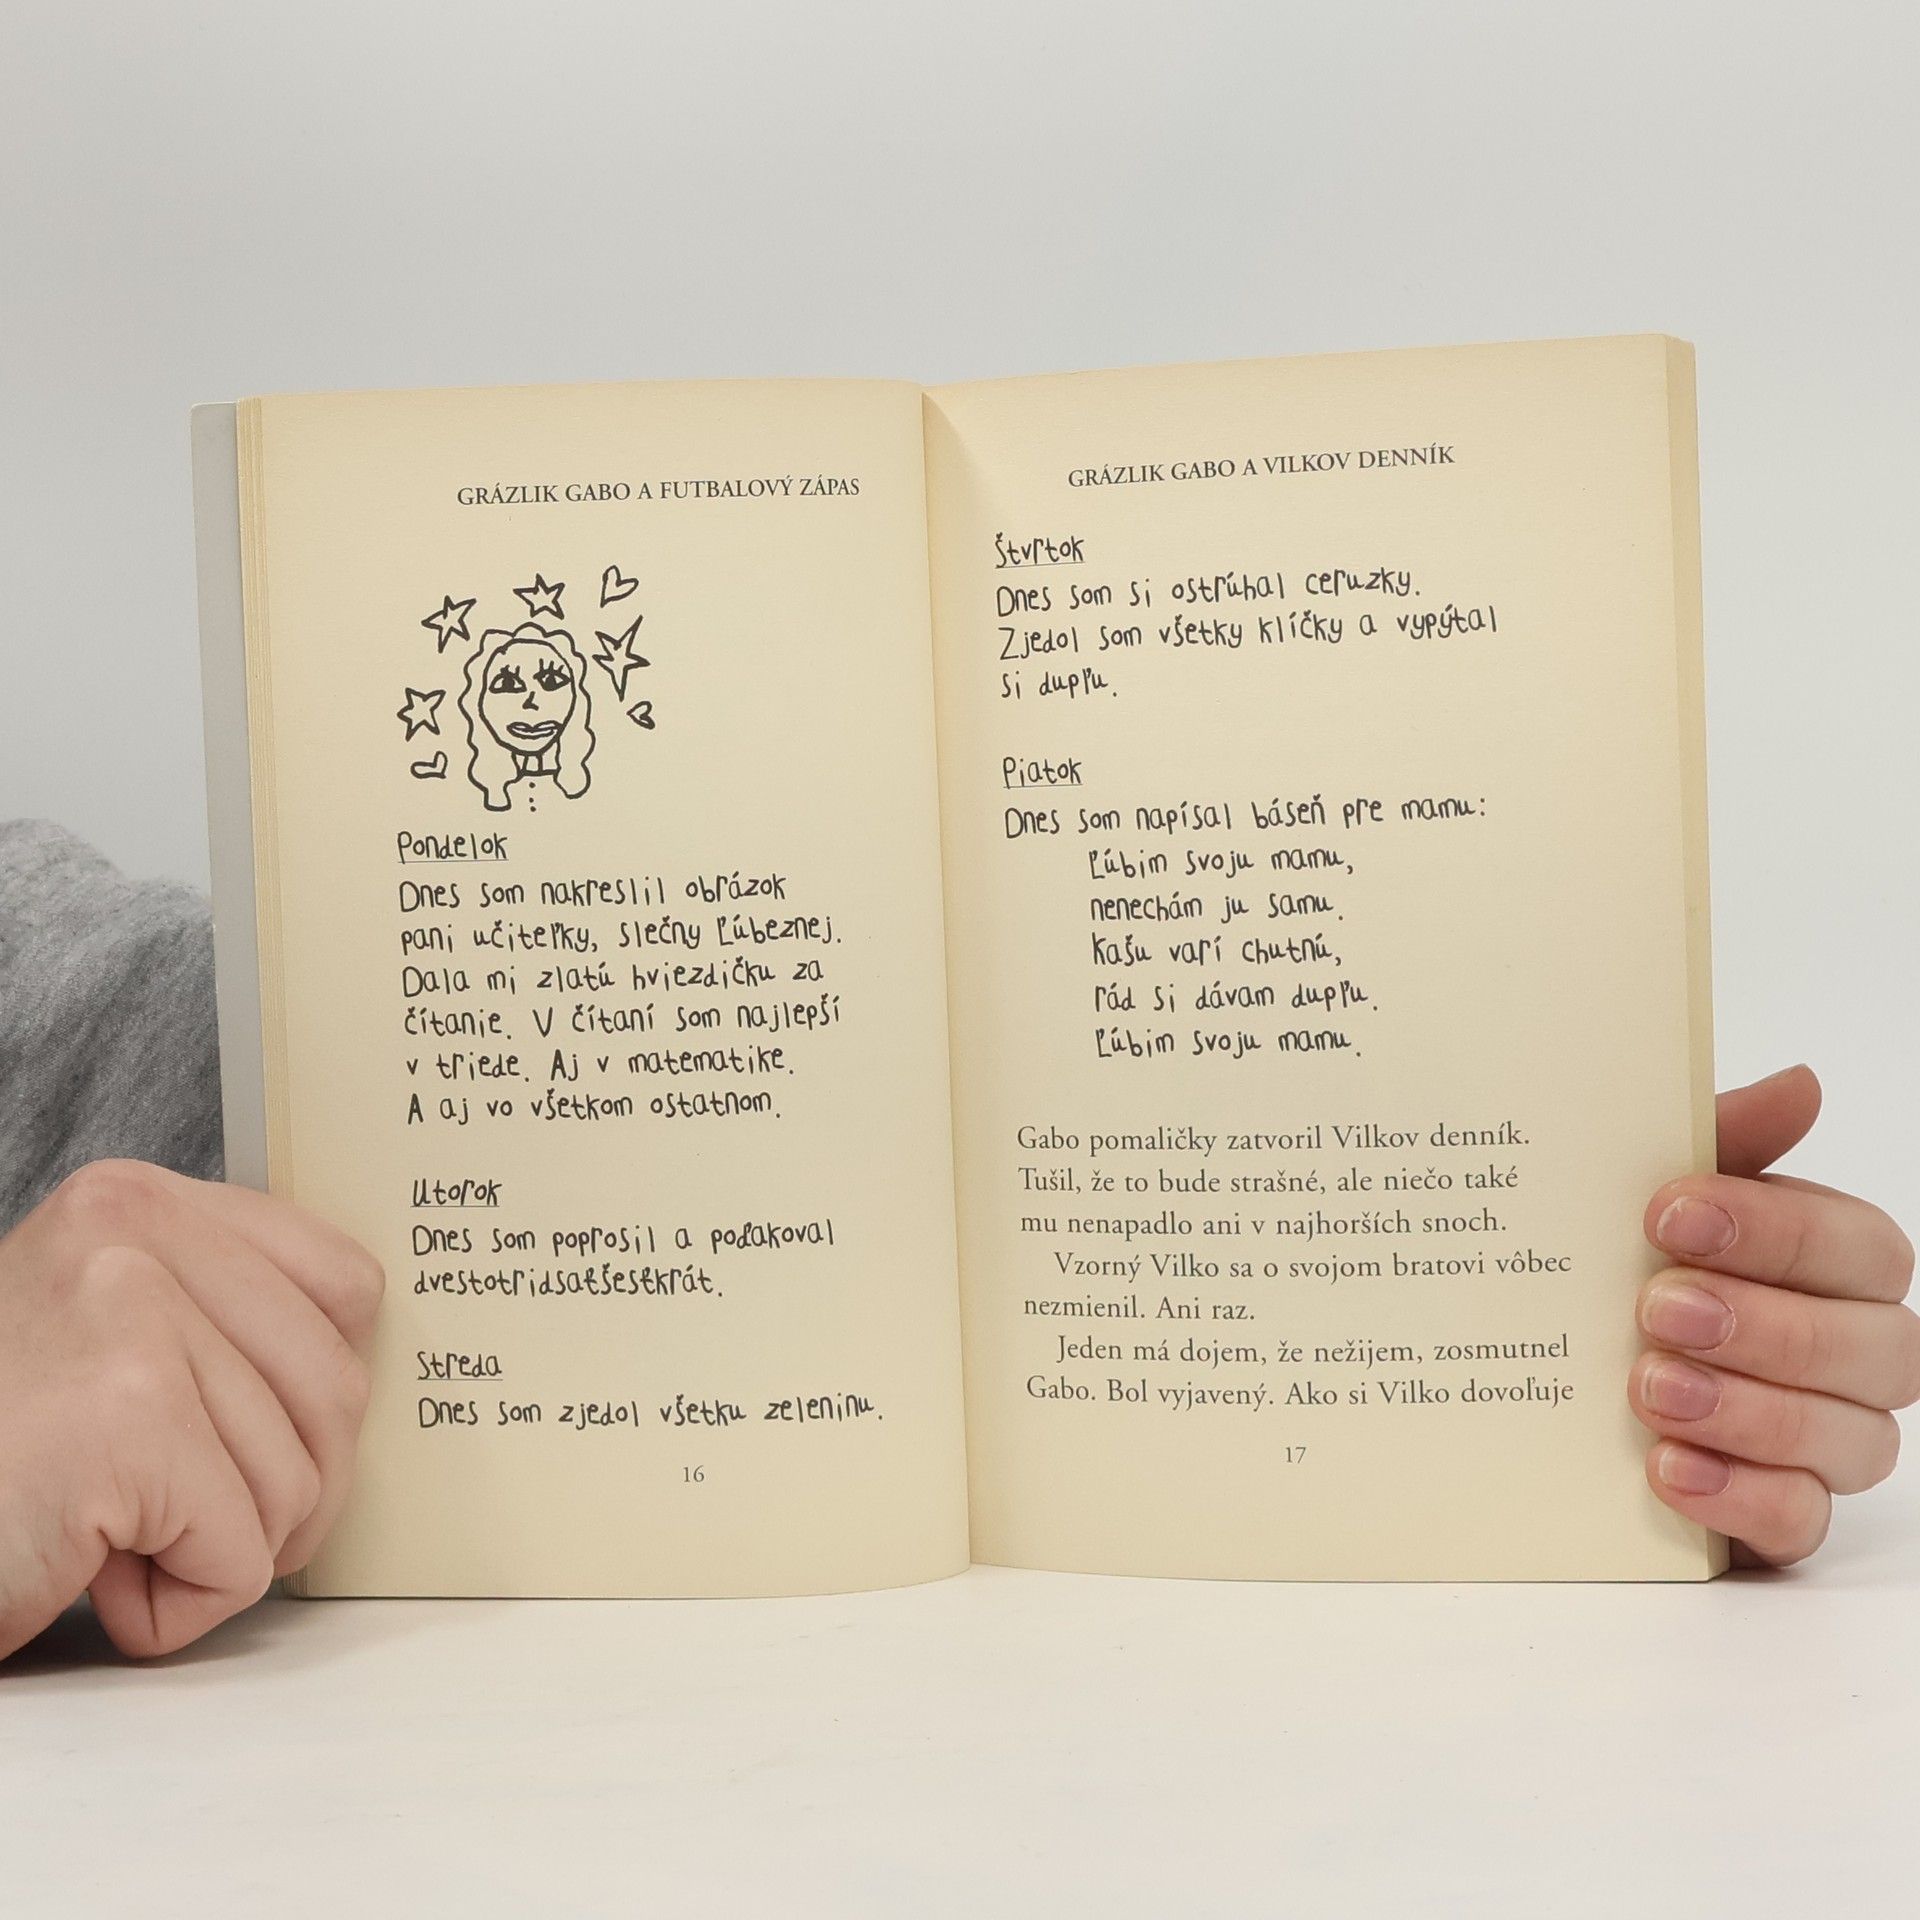 GRÁZLIK GABO A FUTBALOVÝ ZÁPAS
Pondelok
Dnes som nakreslil obrázok
pani učiteľky, slečny Ľúbeznej.
Dala mi zlatú hviezdičku za
čítanie. V čítaní som najlepší
v triede. Aj v matematike.
A aj vo všetkom ostatnom.
Utorok
Dnes som poprosil a poďakoval
dvestotridsaťšesťkrát.
Streda
Dnes som zjedol všetku zeleninu.
16
GRÁZLIK GABO A VILKOV DENNÍK
Štvrtok
Dnes som si ostrúhal ceruzky.
Zjedol som všetky klíčky a vypýtal
si dupľu.
Piatok
Dnes som napísal báseň pre mamu:
Ľúbim svoju mamu,
nenechám ju samu.
Kašu varí chutnú,
rád si dávam dupľu.
Ľúbim svoju mamu.
Gabo pomaličky zatvoril Vilkov denník.
Tušil, že to bude strašné, ale niečo také
mu nenapadlo ani v najhorších snoch.
Vzorný Vilko sa o svojom bratovi vôbec
nezmienil. Ani raz.
Jeden má dojem, že nežijem, zosmutnel
Gabo. Bol vyjavený. Ako si Vilko dovoľuje
17